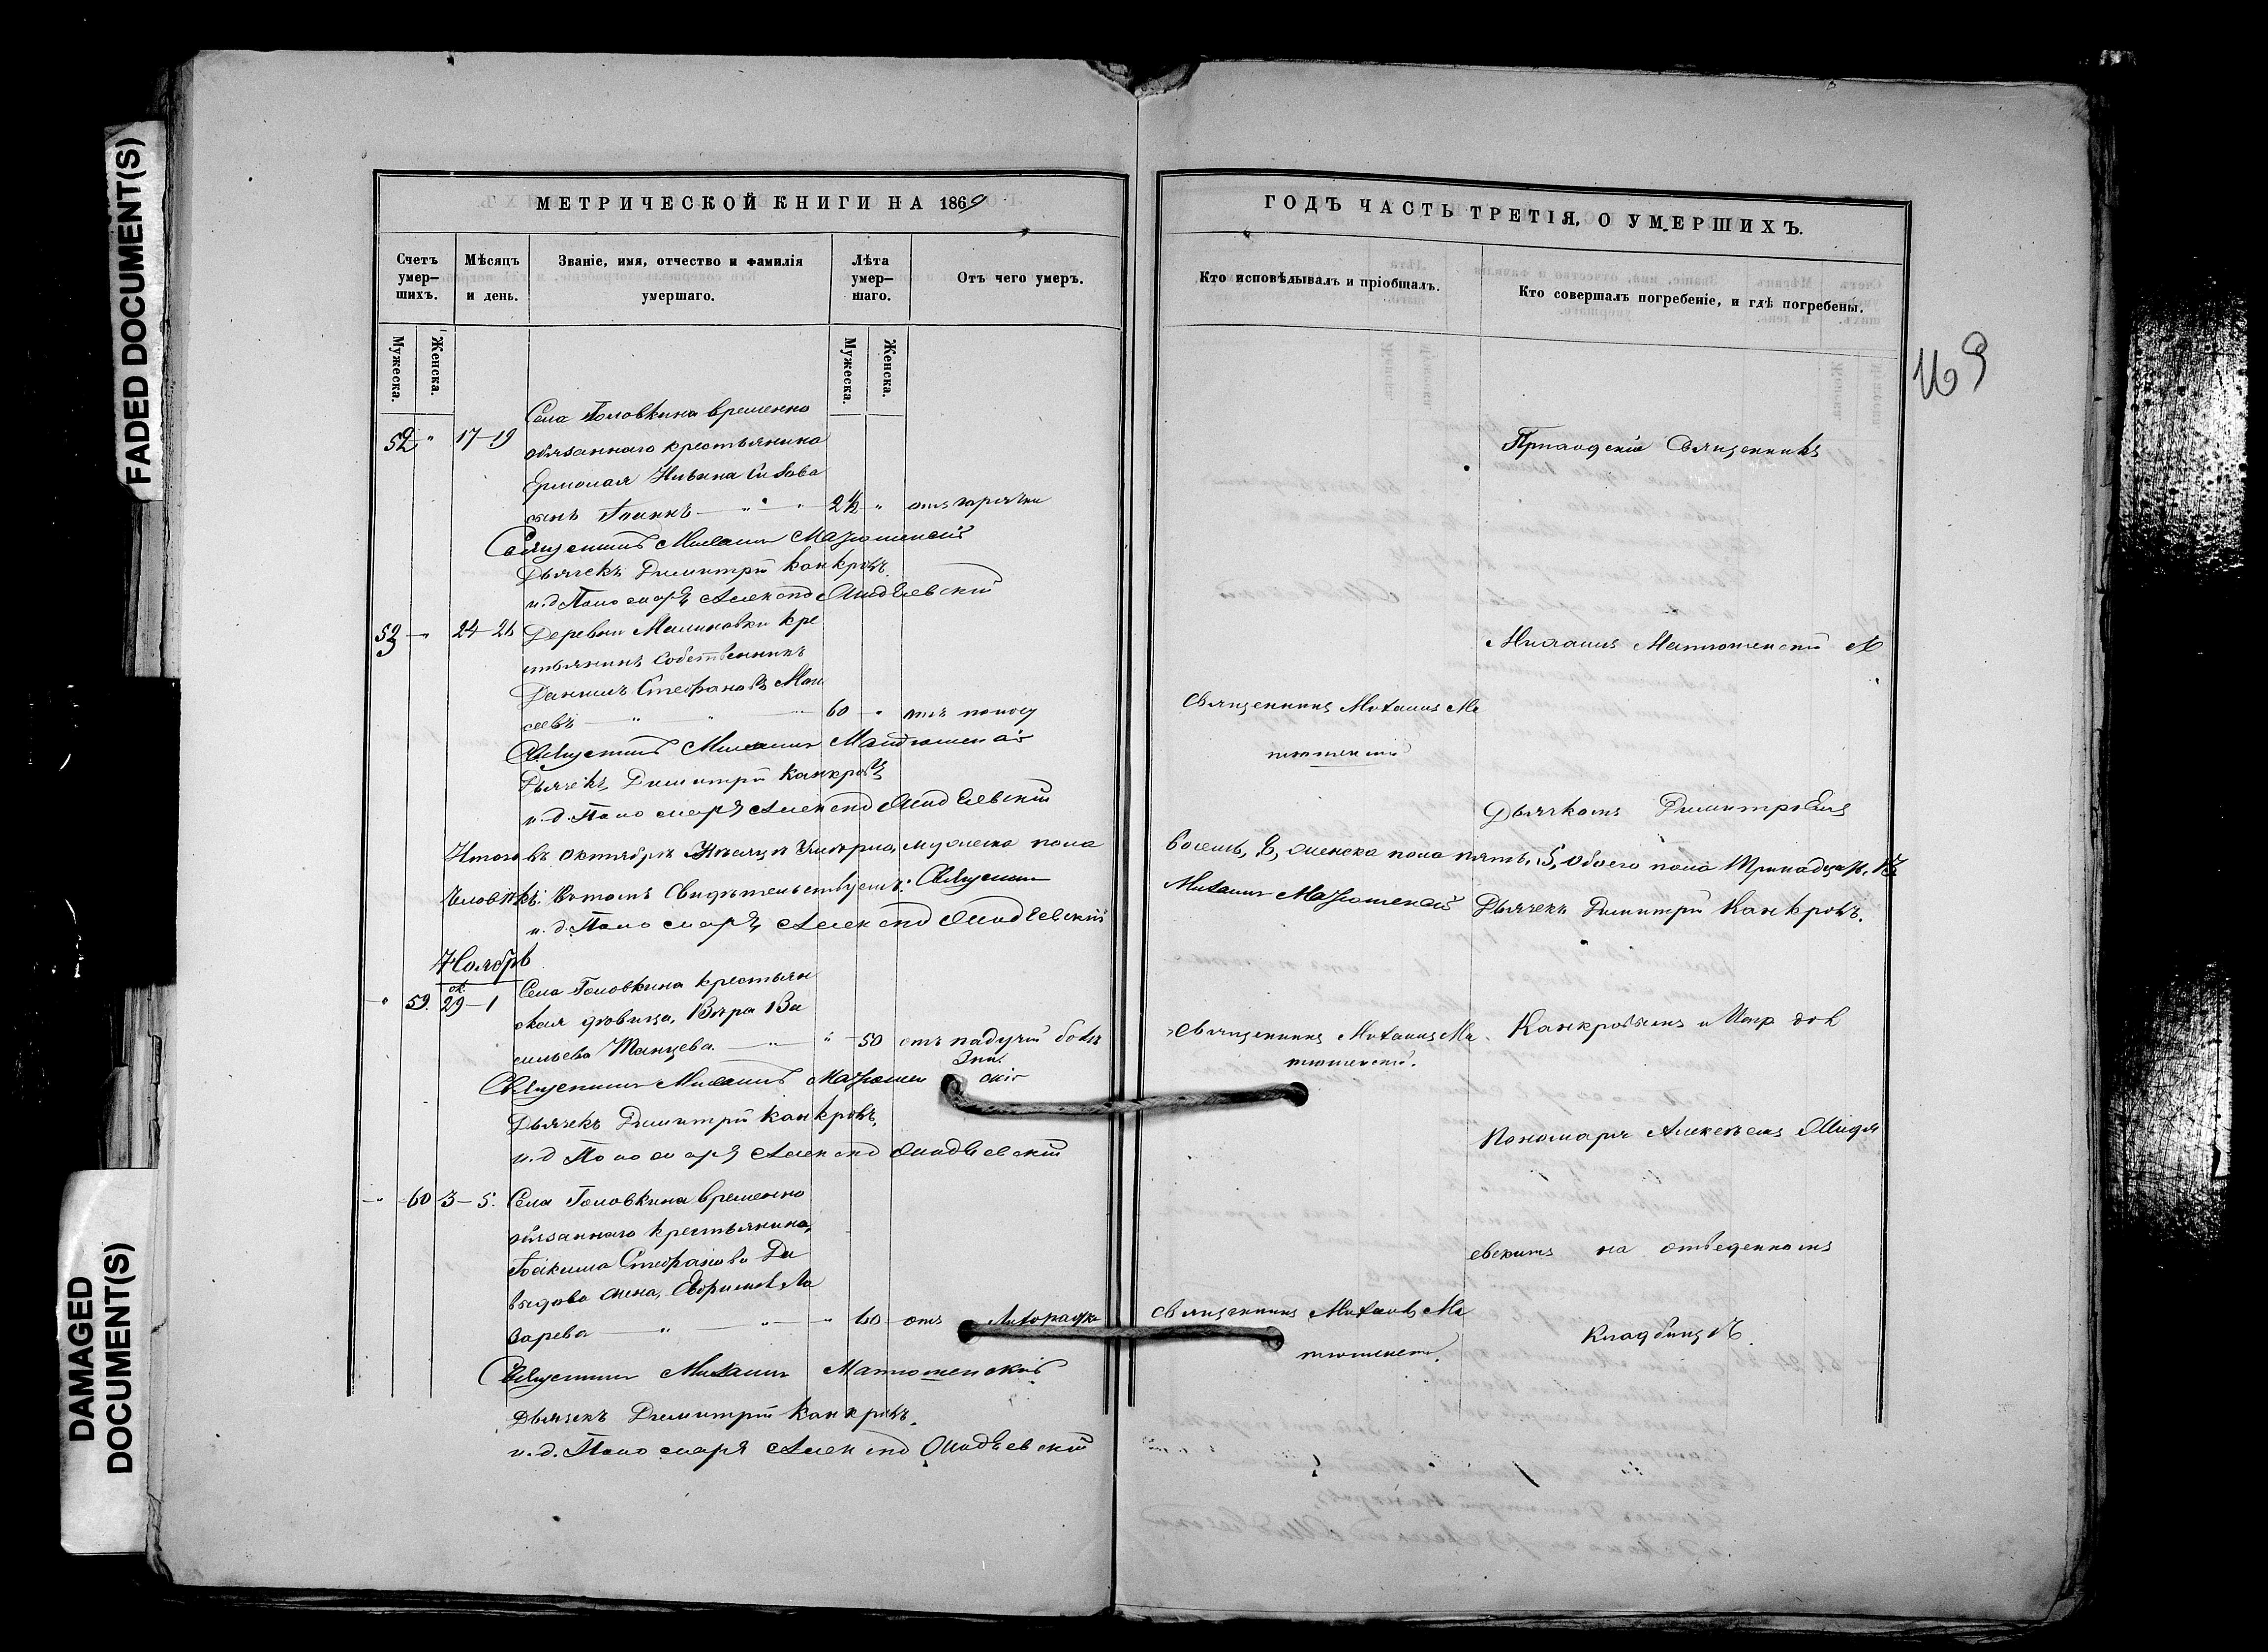 FADED DOCUMENT(S)
DAMAGED
DOCUMENT(S)
МЕТРИЧЕСКОЙ КНИГИ НА 1869
Счетъ умер-шихъ.
Мѣсяцъ и день.
Званіе, имя, отчество и фамилія умершаго.
Лѣта умер-шаго.
Отъ чего умеръ.
Мужеска.
Женска.
Мужеска.
Женска.
Села Головкина временно
52 " 17-19 обязаннаго крестьянина
Ермолая Ильина
сынъ Іоаннъ — " — " 2½ " отъ горячки
Священникъ Михаилъ Матюшенскій
Дьячекъ Димитрій Канкровъ
и.д. Пономаря
53 — " 24-26 Деревни Малиновки кре
стьянинъ собственникъ
Даніилъ Стефановъ Мои
сеевъ — " " 60 " отъ поносу
Священникъ Михаилъ Матюшенскій
Дьячекъ Димитрій Канкровъ
и.д. Пономаря
Итого въ октябрѣ мѣсяцѣ умерло, мужеска пола
человѣкъ. Въ томъ свидѣтельствуемъ: Священникъ
и.д. Пономаря
Ноябрь
" 59. ок. 29-1 Села Головкина крестьян
ская дѣвица, Вѣра Ва
сильева — " — " 50 отъ падучей болѣ
зни.
Священникъ Михаилъ Матюшенскій
Дьячекъ Димитрій Канкровъ,
и.д. Пономаря
— " 60 3-5. Села Головкина временно
обязаннаго крестьянина,
Іоакима Стефанова Да
выдова жена, Ла
зарева — " — " " 60 отъ лихорадки
Священникъ Михаилъ Матюшенскій
Дьячекъ Димитрій Канкровъ.
и.д. Пономаря
ГОДЪ ЧАСТЬ ТРЕТІЯ, О УМЕРШИХЪ.
Кто исповѣдывалъ и пріобщалъ.
Кто совершалъ погребеніе, и гдѣ погребены.
169
Приходскій Священникъ
Михаилъ Матюшенскій съ
Священникъ Михаилъ Ма
тюшенскій
Дьячкомъ Димитріемъ
восемь, 8, женска пола пять, 5, обоего пола тринадцать, 13
Михаилъ Матюшенскій Дьячекъ Димитрій Канкровъ.
Священникъ Михаилъ Ма Канкровымъ и
тюшенскій.
Пономаря
евскимъ на отведенномъ
Священникъ Михаилъ Ма
тюшенскій. кладбищѣ.